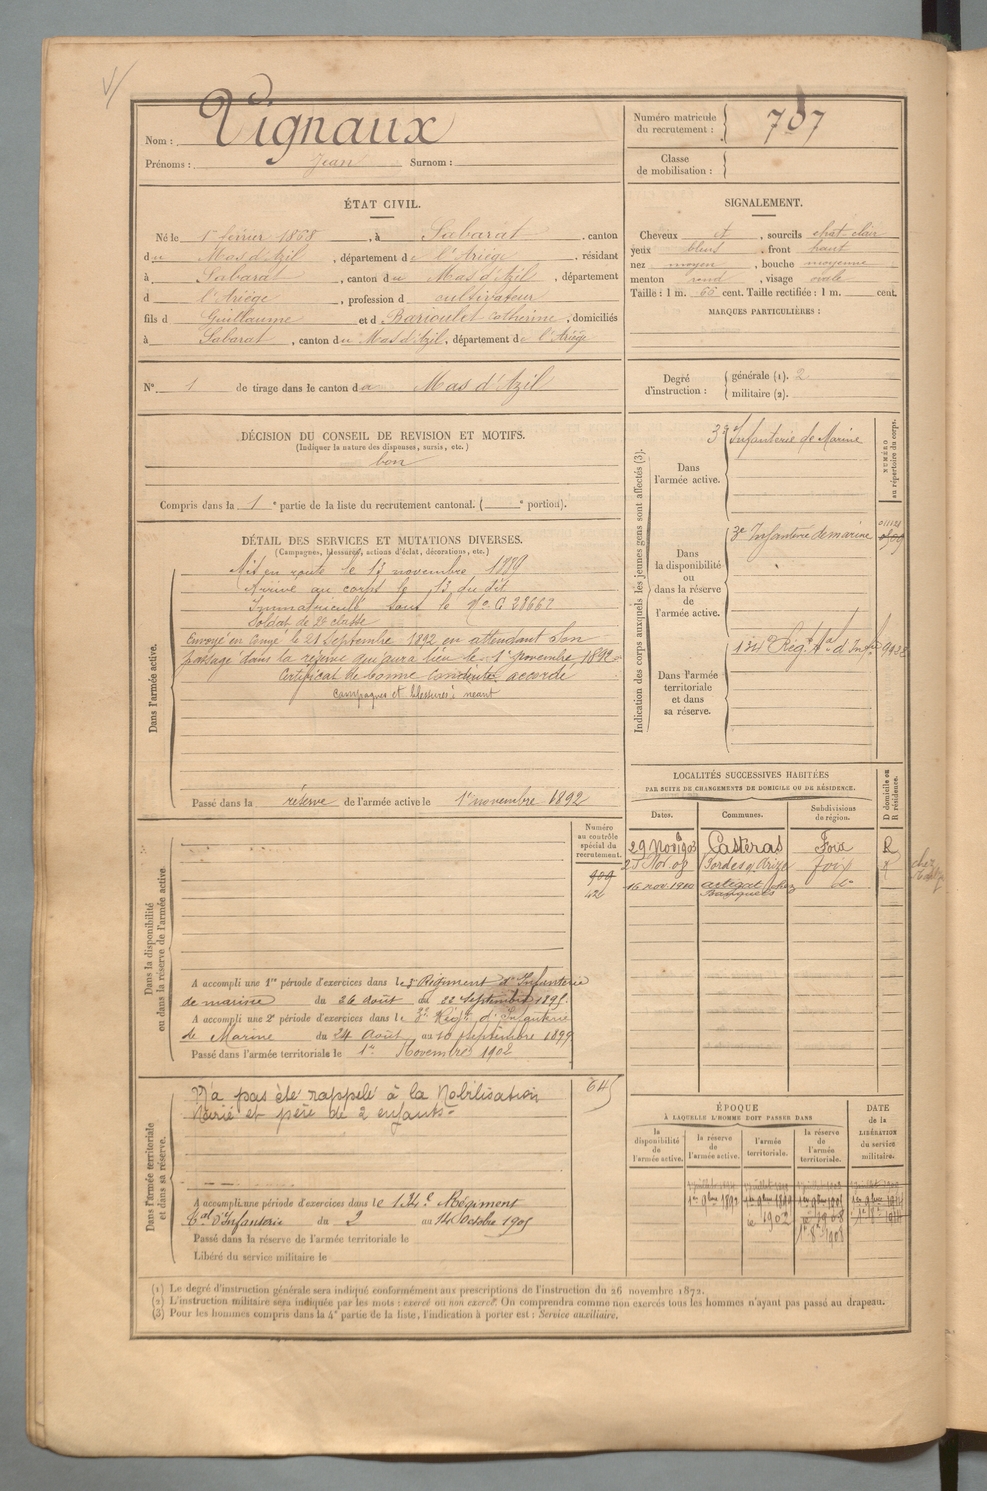 Nom : Vignaux
Prénoms : Jean Surnom :
Numéro matricule
du recrutement : 707
Classe
de mobilisation :
ÉTAT CIVIL.
Né le 1er février 1868, à Sabarat, canton
du Mas d'Azil, département de l'Ariège, résidant
à Sabarat, canton du Mas d'Azil, département
d l'Ariège, profession d cultivateur
fils d Guillaume et d Barioulet Catherine, domiciliés
à Sabarat, canton du Mas d'Azil, département de l'Ariège
N° 1 de tirage dans le canton du Mas d'Azil
SIGNALEMENT.
Cheveux et, sourcils chat clair
yeux bleus, front haut
nez moyen, bouche moyenne
menton rond, visage ovale
Taille : 1 m. 65 cent. Taille rectifiée : 1 m. cent.
MARQUES PARTICULIÈRES :
Degré
d'instruction :
générale (1). 2
militaire (2).
DÉCISION DU CONSEIL DE REVISION ET MOTIFS.
(Indiquer la nature des dispenses, sursis, etc.)
bon
Compris dans la 1e partie de la liste du recrutement cantonal. ( e portion).
DÉTAIL DES SERVICES ET MUTATIONS DIVERSES.
(Campagnes, blessures, actions d'éclat, décorations, etc.)
Dans l'armée active.
Mis en route le 13 novembre 1889
Arrivé au corps le 13 du dit
Immatriculé sous le No G 28662
Soldat de 2e classe
Envoyé en congé le 21 Septembre 1892 en attendant son
passage dans la réserve qui aura lieu le 1er Novembre 1892
Certificat de bonne conduite accordé
Campagnes et blessures : néant
Passé dans la réserve de l'armée active le 1er novembre 1892
Indication des corps auxquels les jeunes gens sont affectés (3).
NUMÉRO
au répertoire du corps.
Dans
l'armée active.
3e Infanterie de Marine
Dans
la disponibilité
ou
dans la réserve
de
l'armée active.
3e Infanterie de marine
Dans l'armée
territoriale
et dans
sa réserve.
134e Régt tal d'Infie
LOCALITÉS SUCCESSIVES HABITÉES
PAR SUITE DE CHANGEMENTS DE DOMICILE OU DE RÉSIDENCE.
D domicile ou
R résidence.
Dates. Communes. Subdivisions
de région.
29 Nov 1903 Casteras Foix R
Nov. 08 Bordes s/ Arize foix
16 nov. 1910 Artigat (chez do
Dans la disponibilité
ou dans la réserve de l'armée active.
Numéro
au contrôle
spécial du
recrutement.
42
A accompli une 1re période d'exercices dans le 3e Régiment d'Infanterie
de marine du 26 août au 22 Septembre 1895.
A accompli une 2e période d'exercices dans le 3e Régt d'Infanterie
de Marine du 24 Août au 20 Septembre 1899
Passé dans l'armée territoriale le 1er Novembre 1902
Dans l'armée territoriale
et dans sa réserve.
N'a pas été rappelé à la Mobilisation 645
Marié et père de 2 enfants
A accompli une période d'exercices dans le 134e Régiment
tal d'Infanterie du 2 au 14 Octobre 1905
Passé dans la réserve de l'armée territoriale le
Libéré du service militaire le
ÉPOQUE
À LAQUELLE L'HOMME DOIT PASSER DANS
DATE
de la
LIBÉRATION
du service
militaire.
la
disponibilité
de
l'armée active.
la réserve
de
l'armée active.
l'armée
territoriale.
la réserve
de
l'armée
territoriale.
1er 9bre 1892
1902
1908
(1) Le degré d'instruction générale sera indiqué conformément aux prescriptions de l'instruction du 26 novembre 1872.
(2) L'instruction militaire sera indiquée par les mots : exercé ou non exercé. On comprendra comme non exercés tous les hommes n'ayant pas passé au drapeau.
(3) Pour les hommes compris dans la 4e partie de la liste, l'indication à porter est : Service auxiliaire.